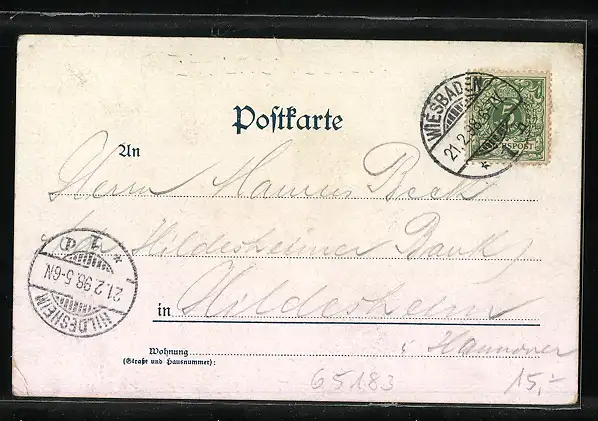 Postkarte
WIESBADEN
21.2.98
5
REICHSPOST
An
Herrn Hannes Beck
Hildesheimer Bank
in Hildesheim
Hannover
Wohnung
(Straße und Hausnummer):
HILDESHEIM
21.2.98.5-6N
65183
15,-